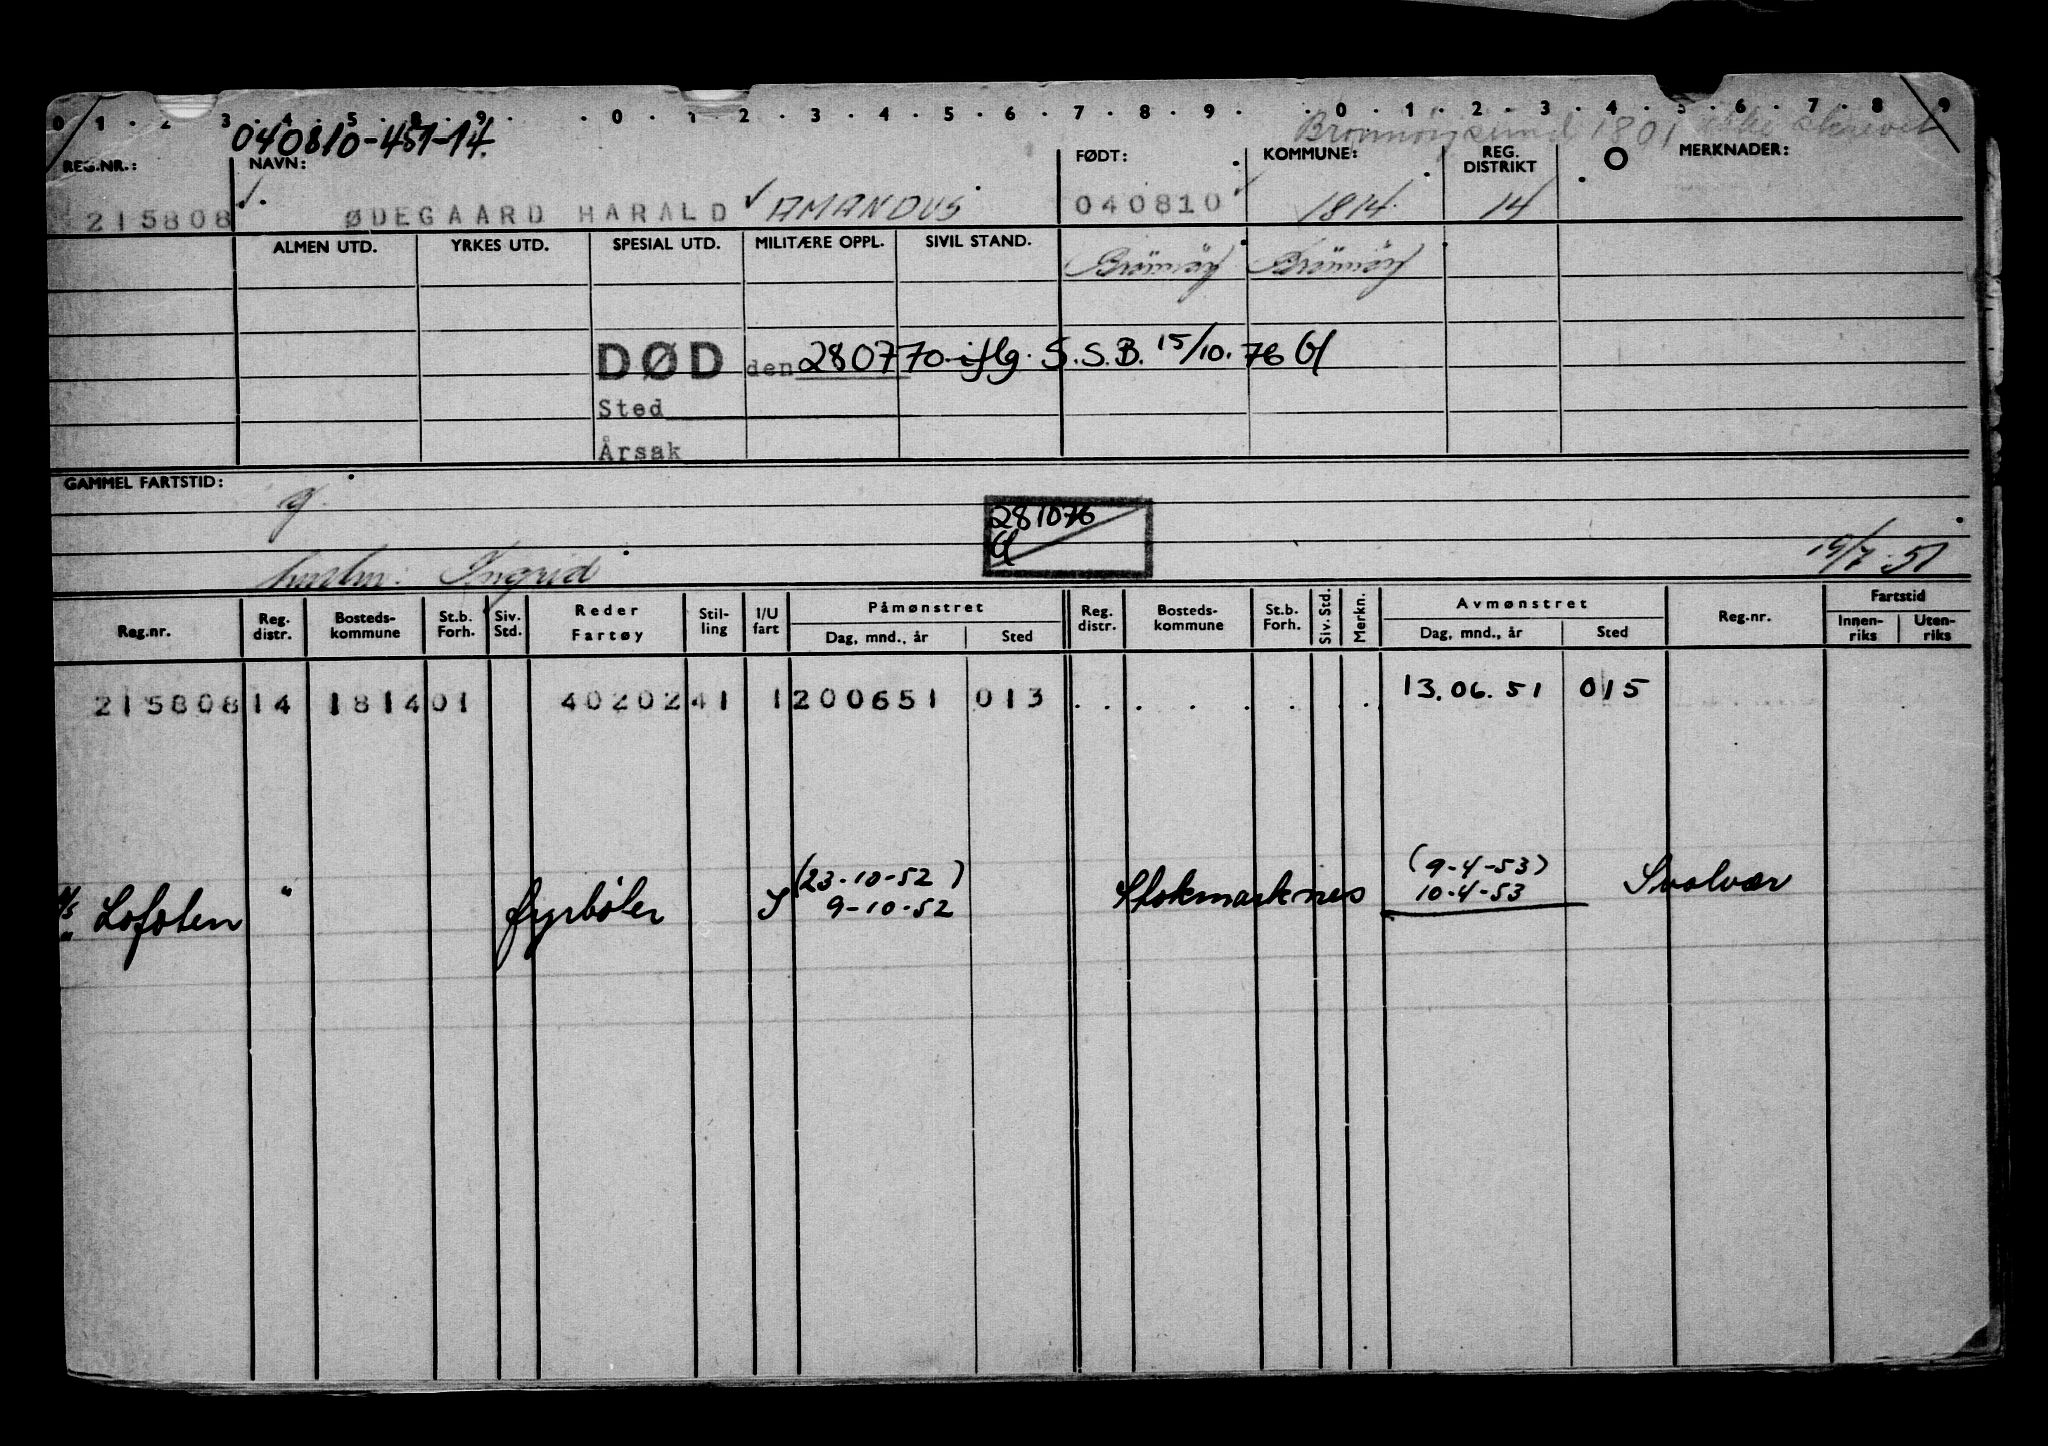 0 1 . 2 3 . 4 . 5 . 8 . 9 . . 0 . 1 . 2 . 3 . 4 . 5 . 6 . 7 . 8 . 9 . . 0 . 1 . 2 . 3 . 4 . 5 . 6 . 7 . 8 9
040810-451-14. Brønnøysund 1801 ikke skrevet
REG.NR.: NAVN: FØDT: KOMMUNE: REG. DISTRIKT O MERKNADER:
215808 ØDEGAARD HARALD AMANDUS 040810 1814. 14
ALMEN UTD. YRKES UTD. SPESIAL UTD. MILITÆRE OPPL. SIVIL STAND. Brönnöy Brönnöy
DØD den 280770 iflg. S.S.B. 15/10.76 Gl
Sted
Årsak
GAMMEL FARTSTID: g.
281076
Gl
Ingrid 19/7.51
Reg.nr. Reg. distr. Bosteds- kommune St.b. Forh. Siv. Std. Reder Fartøy Stil- ling I/U fart Påmønstret Dag, mnd., år Sted Reg. distr. Bosteds- kommune St.b. Forh. Siv. Std. Merkn. Avmønstret Dag, mnd., år Sted Reg.nr. Fartstid Innen- riks Uten- riks
215808 14 1814 01 40202 41 1 200651 013 . . . . . . . . 13.06.51 015
(23-10-52) (9-4-53)
M/S Lofoten " fyrböter I 9-10-52 Stokmarknes 10-4-53 Svolvær